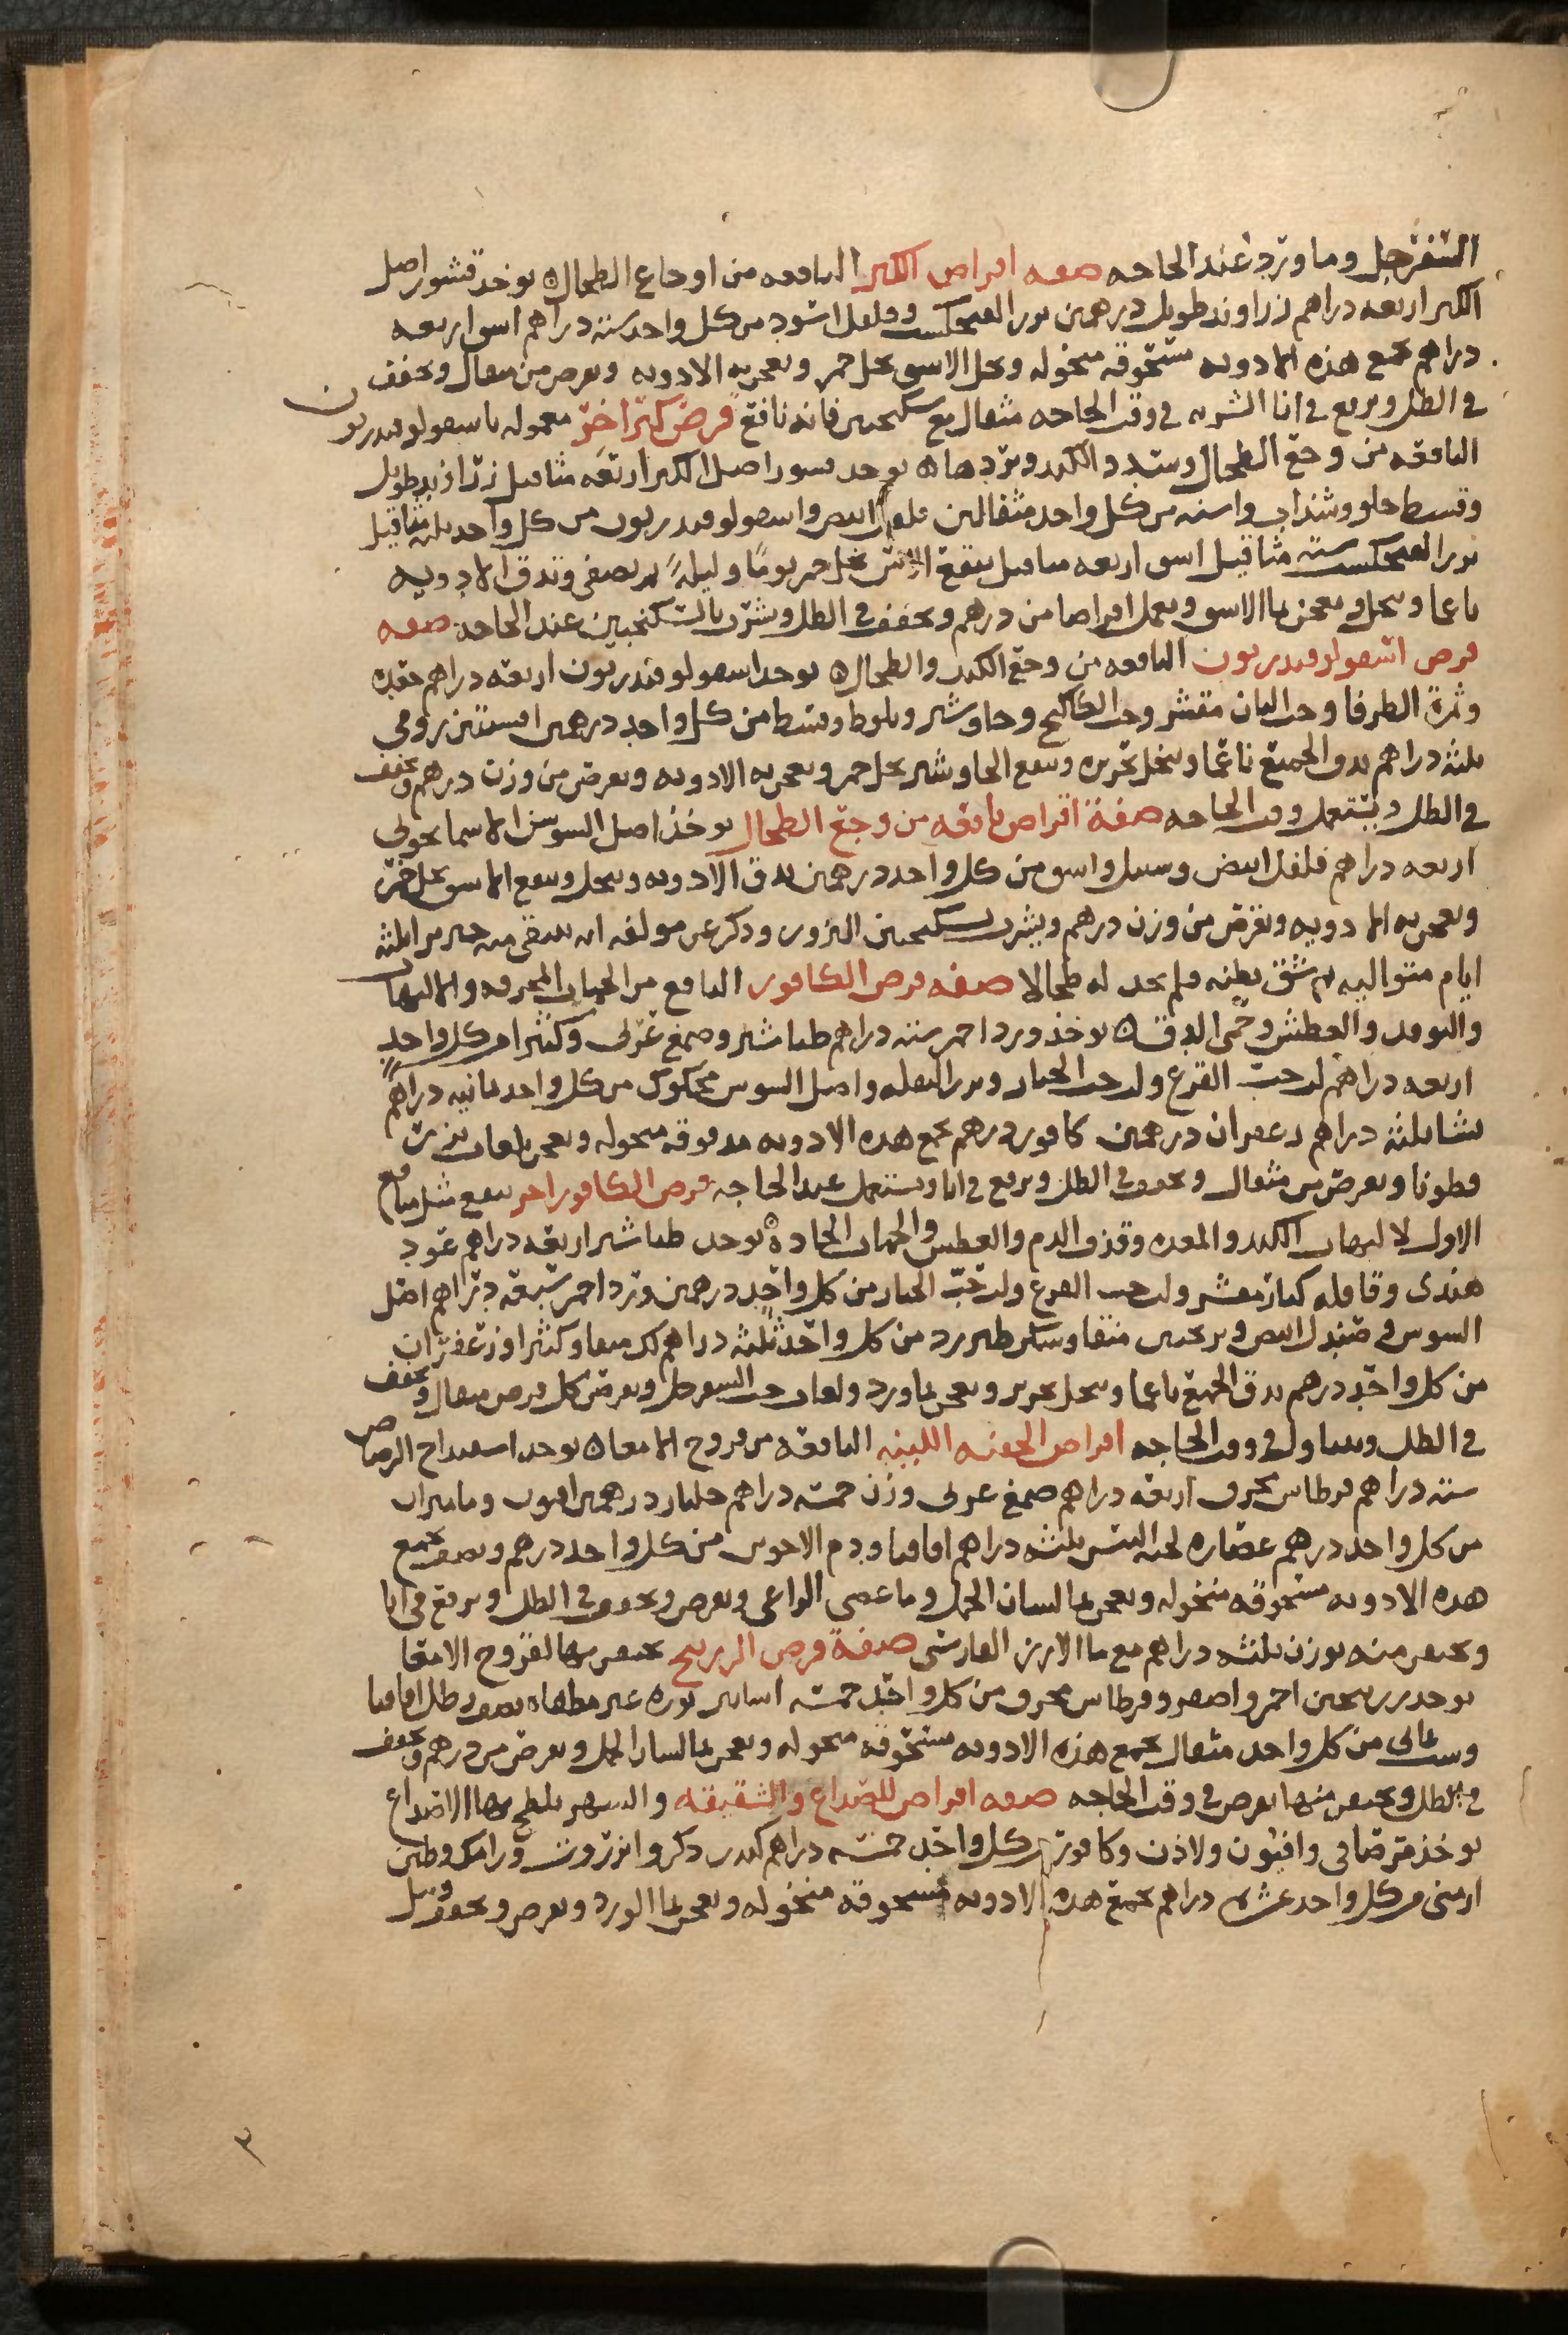 السفرجل وماورد عند الحاجه صفه اقراص الكبر النافعه من اوجاع الطحال ه يوخذ قشور اصل
الكبر اربعه دراهم زراوند طويل درهمين بزر الفنجنكست وفلفل اسود من كل واحد سته دراهم اسق اربعه
دراهم تجمع هذه الادويه مسحوقه منخوله ويحل الاسق بخل خمر ويعجن به الادويه ويقرص من مثقال ويجفف
في الظل ويرفع في انا الشربه في وقت الحاجه مثقال مع سكنجبين فانه نافع قرص كبر اخر معموله باسقولوقندريون
النافعه من وجع الطحال وسدد الكبد وبردها ه يوخذ قشور اصل الكبر اربعه مثاقيل زراوند طويل
وقسط حلو وسذاب واشنه من كل واحد مثقالين فلفل ابيض واسقولوقندريون من كل واحد ثلثه مثاقيل
بزر الفنجنكست سته مثاقيل اسق اربعه مثاقيل ينقع الاسق بخل خمر يوما وليله ثم يصفى وتدق الادويه
ناعما وينخل ويعجن بما الاسق ويعمل اقراصا من درهم ويجفف في الظل ويشرب بالسكنجبين عند الحاجه صفه
قرص اسقولوقندريون النافعه من وجع الكبد والطحال ه يوخذ اسقولوقندريون اربعه دراهم
وثمرة الطرفا وحب البان مقشر وحب الكاكنج وجاوشير وبلوط وقسط من كل واحد درهمين افسنتين رومي
ثلثه دراهم يدق الجميع ناعما وينخل بحريره وينقع الجاوشير بخل خمر ويعجن به الادويه ويقرص من وزن درهم ويجفف
في الظل ويستعمل وقت الحاجه صفة اقراص نافعه من وجع الطحال يوخذ اصل السوسن الاسمانجوني
اربعه دراهم فلفل ابيض وسنبل واسق من كل واحد درهمين يدق الادويه وينخل وينقع الاسق بخل خمر
ويعجن به الادويه ويقرص من وزن درهم ويشرب بسكنجبين البزور وذكر عن مولفه انه سقى منه خنزير ثلثه
ايام متواليه ثم شق بطنه فلم يجد له طحالا صفه قرص الكافور النافع من الحميات المحرقه والالتهاب
والتوقد والعطش وحمى الدق ه يوخذ ورد احمر سته دراهم طباشير وصمغ عربي وكثيرا من كل واحد
اربعه دراهم لب حب القرع ولب حب الخيار وبزر البقله واصل السوس محكوك من كل واحد ثمانيه دراهم
نشا ثلثه دراهم زعفران درهمين كافور درهم تجمع هذه الادويه مدقوقه منخوله ويعجن بلعاب بزر
قطونا ويقرص من مثقال ويجفف في الظل ويرفع في انا ويستعمل عند الحاجه قرص الكافور اخر ينفع مثل منافع
الاول لالتهاب الكبد والمعده وقذف الدم والعطش والحميات الحاده ه يوخذ طباشير اربعه دراهم عود
هندي وقاقله كبار مقشر ولب حب القرع ولب حب الخيار من كل واحد درهمين ورد احمر سبعه دراهم اصل
السوس وصندل ابيض وترنجبين منقا وسكر طبرزد من كل واحد ثلثه دراهم لك منقا وكثيرا وزعفران
من كل واحد درهم يدق الجميع ناعما وينخل بحرير ويعجن بماورد ولعاب حب السفرجل ويقرص كل قرص مثقال ويجفف
في الظل ويتناول في وقت الحاجه اقراص الحقنه اللينه النافعه من قروح الامعا ه يوخذ اسفيداج الرصاص
سته دراهم قرطاس محرق اربعه دراهم صمغ عربي وزن خمسه دراهم جلنار درهمين افيون وماميران
من كل واحد درهم عصاره لحيه التيس ثلثه دراهم اقاقيا ودم الاخوين من كل واحد درهم ونصف تجمع
هذه الادويه مسحوقه منخوله ويعجن بما لسان الحمل وما عصى الراعي ويقرص ويجفف في الظل ويرفع في انا
ويحتقن منه بوزن ثلثه دراهم مع ما الارز الفارسي صفة قرص الزرنيخ يحتقن بها لقروح الامعا
يوخذ زرنيخين احمر واصفر وقرطاس محرق من كل واحد خمسه اساتير نوره غير مطفاه نصف رطل اقاقيا
من كل واحد مثقال تجمع هذه الادويه مسحوقه منخوله ويعجن بما لسان الحمل ويقرص من درهم ويجفف
في الظل ويحتقن منها بقرص في وقت الحاجه صفه اقراص للصداع والشقيقه والسهر يلطخ بها الاصداغ
يوخذ مر صافي وافيون ولاذن وكافور من كل واحد خمسه دراهم كندر ذكر وانزروت ورامك وطين
ارمني من كل واحد عشره دراهم تجمع هذه الادويه مسحوقه منخوله ويعجن بما الورد ويقرص ويجفف
٣